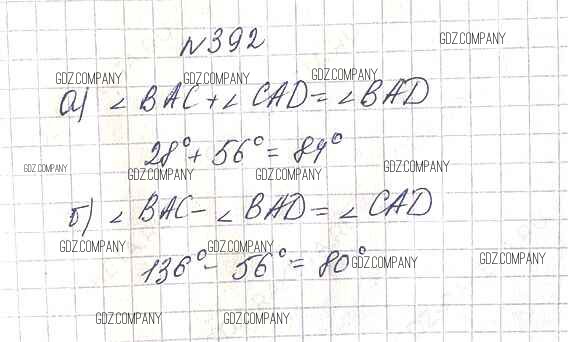 №392
а) ∠BAC+∠CAD=∠BAD
28°+56°=84°
б) ∠BAC-∠BAD=∠CAD
136°-56°=80°
GDZ.COMPANY
GDZ.COMPANY
GDZ.COMPANY
GDZ.COMPANY
GDZ.COMPANY
GDZ.COMPANY
GDZ.COMPANY
GDZ.COMPANY
GDZ.COMPANY
GDZ.COMPANY
GDZ.COMPANY
GDZ.COMPANY
GDZ.COMPANY
GDZ.COMPANY